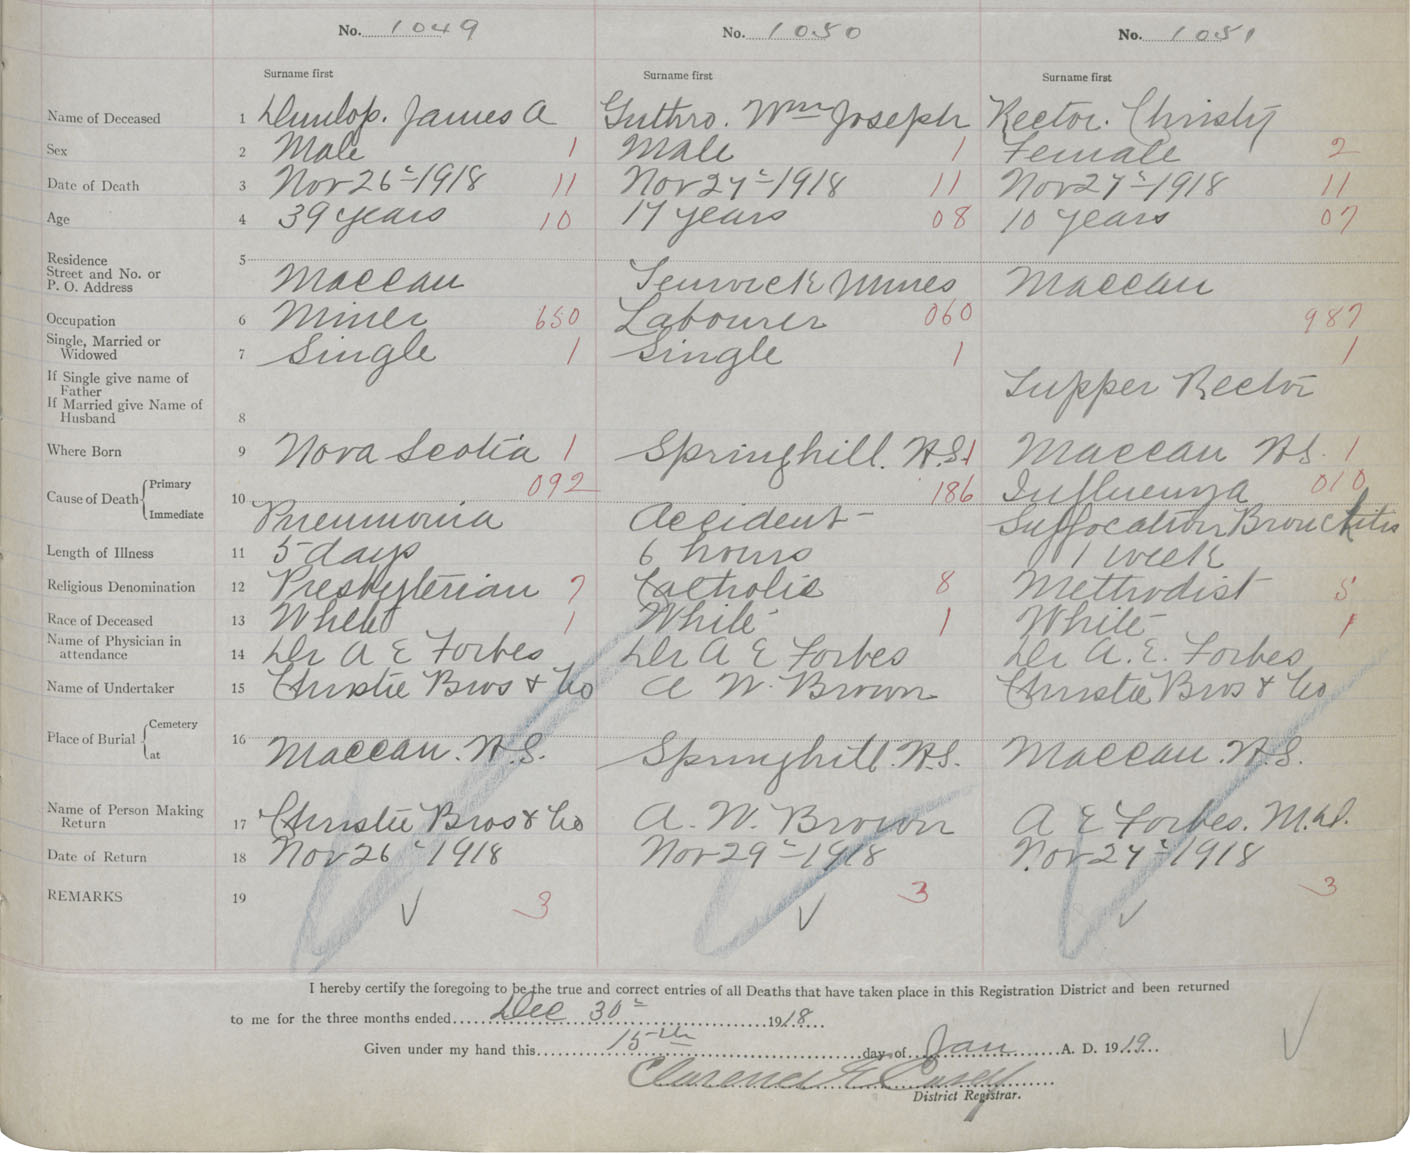 No. 1049 No. 1050 No. 1051
Surname first Surname first Surname first
Name of Deceased 1 Dunlop. James A Guthro. Wm Joseph Rector. Christy
Sex 2 Male 1 Male 1 Female 2
Date of Death 3 Nov 26 - 1918 11 Nov 27 - 1918 11 Nov 27 - 1918 11
Age 4 39 years 10 17 years 08 10 years 07
Residence 5
Street and No. or
P. O. Address Maccan Fenwick Mines Maccan
Occupation 6 Miner 650 Labourer 060 987
Single, Married or
Widowed 7 Single 1 Single 1 1
If Single give name of
Father Tupper Rector
If Married give Name of
Husband 8
Where Born 9 Nova Scotia 1 Springhill. N.S. 1 Maccan N.S. 1
Cause of Death Primary 10 092 186 Influenza 010
Immediate Pneumonia Accident - Suffocation Bronchitis
Length of Illness 11 5 days 6 hours 1 week
Religious Denomination 12 Presbyterian 7 Catholic 8 Methodist 5
Race of Deceased 13 White 1 White 1 White 1
Name of Physician in
attendance 14 Dr A E Forbes Dr A E Forbes Dr A. E. Forbes
Name of Undertaker 15 Christie Bros & Co A W. Brown Christie Bros & Co
Place of Burial Cemetery 16
at Maccan. N.S. Springhill. N.S. Maccan. N.S.
Name of Person Making
Return 17 Christie Bros & Co A. W. Brown A E Forbes. M.D.
Date of Return 18 Nov 26 - 1918 Nov 29 - 1918 Nov 27 - 1918
REMARKS 19 3 3 3
I hereby certify the foregoing to be the true and correct entries of all Deaths that have taken place in this Registration District and been returned
to me for the three months ended Dec 30 1918
Given under my hand this 15th day of Jan A. D. 1919
Clarence
District Registrar.